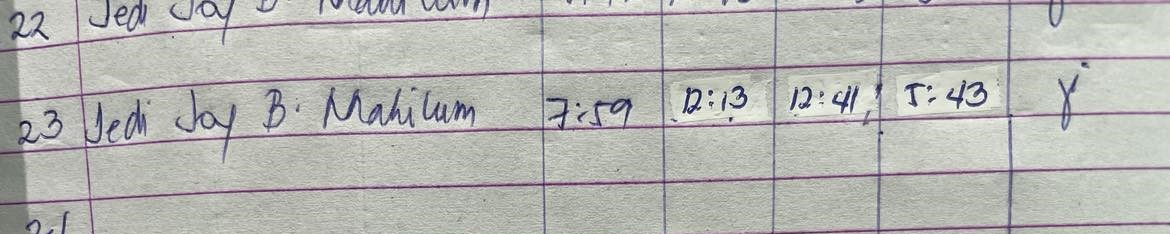 22 Jedi Joy B
23 Jedi Joy B. Mahilum 7:59 12:13 12:41 5:43